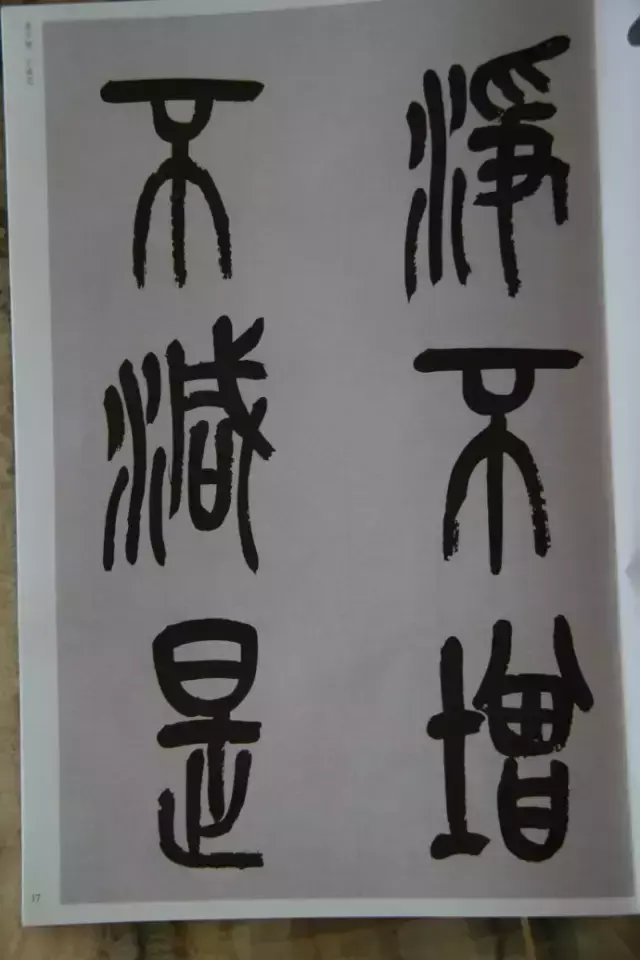 淨不增
不減是
17